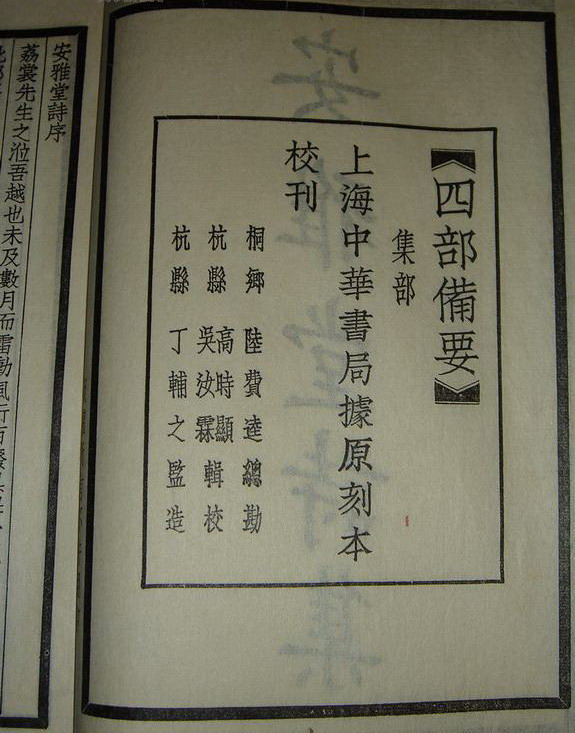 四部備要
集部
上海中華書局據原刻本
校刊
桐鄉 陸費逵總勘
杭縣 高時顯 吳汝霖 輯校
杭縣 丁輔之監造
安雅堂詩序
荔裳先生之涖吾越也未及數月而雷動風行百廢